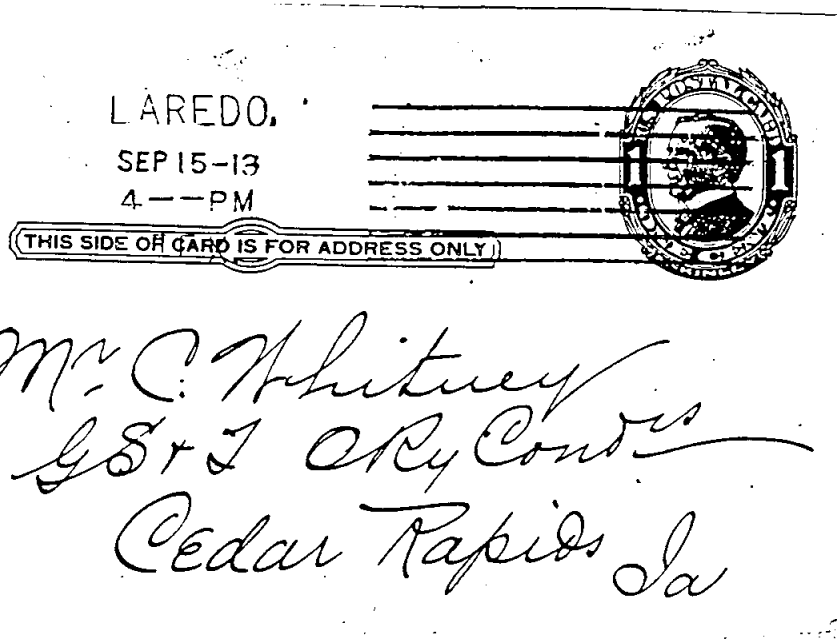 LAREDO.
SEP 15-13
4--PM
U.S. POSTAL CARD
1 1
THIS SIDE OF CARD IS FOR ADDRESS ONLY
Mr. C. Whitney
G S & T O Ry Condrs
Cedar Rapids Ia